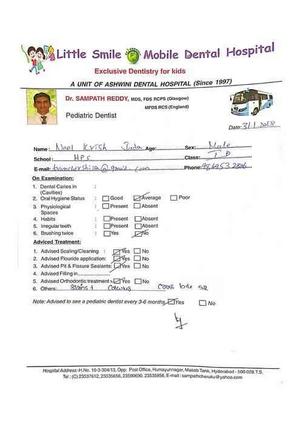 Little Smile Mobile Dental Hospital
Exclusive Dentistry for kids
A UNIT OF ASHWINI DENTAL HOSPITAL (Since 1997)
Dr. SAMPATH REDDY, MDS, FDS RCPS (Glasgow)
MFDS RCS (England)
Pediatric Dentist
Date: 31/1/2018
Name: Age: Sex: Male
School: HPS Class: I-D
E-mail:
On Examination:
1. Dental Caries in
(Cavities)
2. Oral Hygiene Status Good Average Poor
3. Physiological Present Absent
Spaces
4. Habits Present Absent
5. Irregular teeth Present Absent
6. Brushing twice Yes No
Adviced Treatment:
1. Advised Scaling/Cleaning Yes No
2. Advised Flouride application: Yes No
3. Advised Pit & Fissure Sealants Yes No
4. Advised Filling in
5. Advised Orthodontic treatment Yes No
6. Others:
Note: Advised to see a pediatric dentist every 3-6 months Yes No
Hospital Address: H.No. 10-3-304/13, Opp. Post Office, Humayunnagar, Masab Tank, Hyderabad - 500 028 T.S.
Tel: (C) 23537612, 23535656, 23590690, 23535956, E-mail: sampathcheruku@yahoo.com